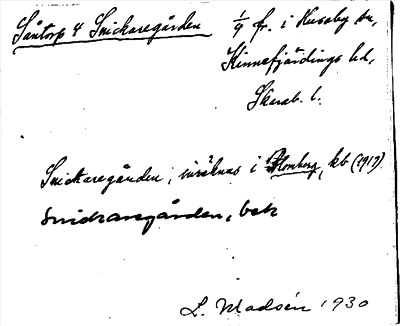 Såntorp 4 Snickaregården 1/4 fr. i Husaby sn,
Kinnefjärdings hd,
Skarab. l.
Snickaregården, inräknas i Blomberg, kb (1917).
Snickaregården, bek
L. Madsén 1930